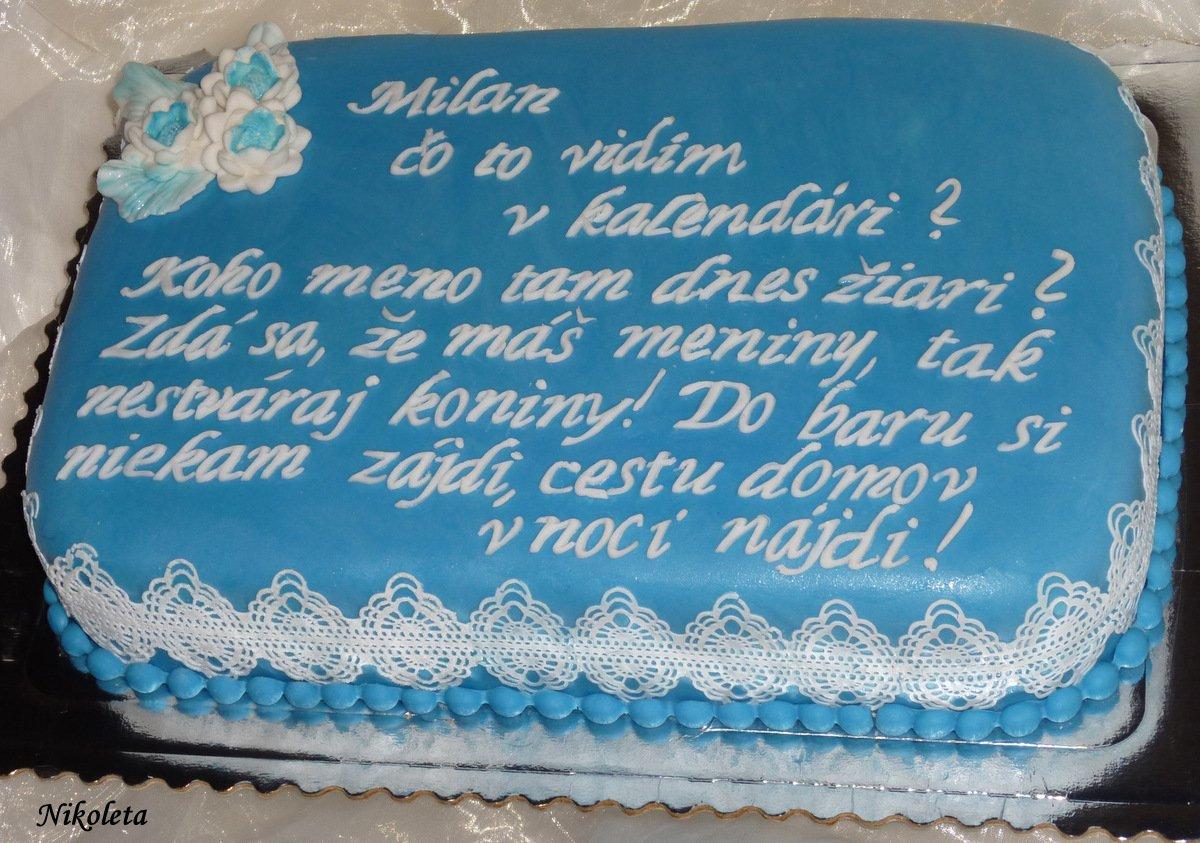 Milan
čo to vidím
v kalendári ?
Koho meno tam dnes žiari ?
Zdá sa, že máš meniny, tak
nestváraj koniny! Do baru si
niekam zájdi, cestu domov
v noci nájdi !
Nikoleta